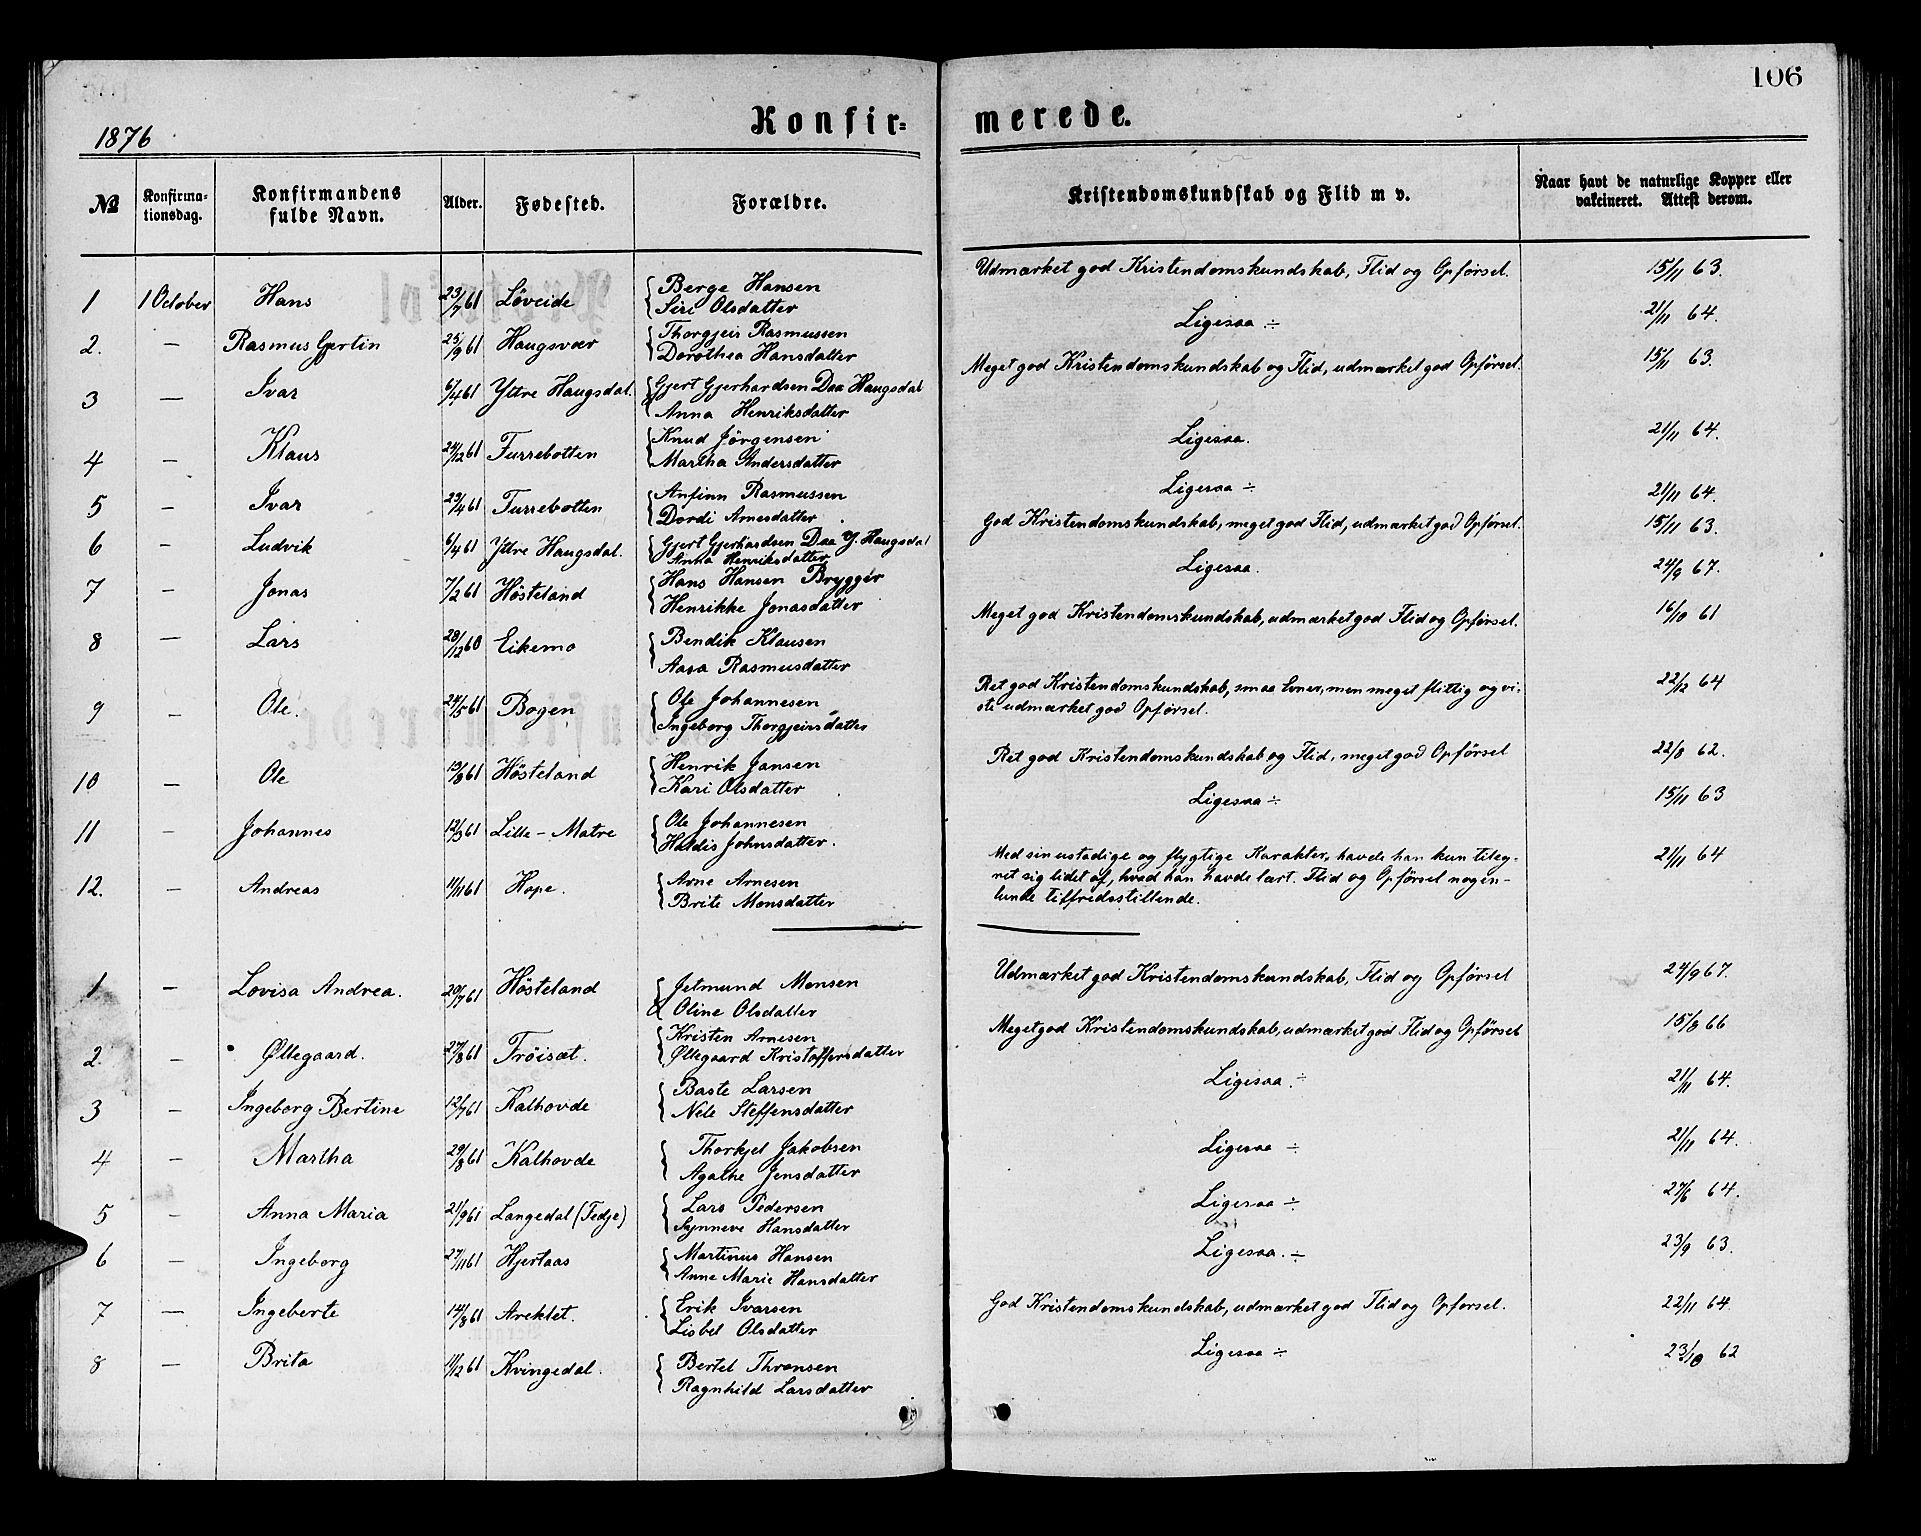 106
1876
Konfir=
merede.
№
Konfirma-
tionsdag.
Konfirmandens
fulde Navn.
Alder.
Fødested.
Forældre.
Kristendomskundskab og Flid m v.
Naar havt de naturlige Kopper eller
vakcineret. Attest derom.
1 1 October Hans 23/7 61 Løveide { Berge Hansen
Siri Olsdatter
Udmærket god Kristendomskundskab, Flid og Opførsel. 15/11 63.
2. — Rasmus Gjertin 25/9 61 Haugsvær { Thorgjeir Rasmussen
Dorothea Hansdatter
Ligesaa .÷ 21/11 64.
3 — Ivar 6/4 61 Yttre Haugsdal. { Gjert Gjerhardsen Daa Haugsdal
Anna Henriksdatter
Meget god Kristendomskundskab og Flid, udmærket god Opførsel. 15/11 63.
4 — Klaus 24/12 61 Furrebotten { Knud Jörgensen
Martha Andersdatter
Ligesaa. 21/11 64.
5 — Ivar 23/4 61 Furrebotten { Anfinn Rasmussen
Dordi Arnesdatter
Ligesaa ÷ 21/11 64.
6 — Ludvik 6/4 61 Yttre Haugsdal. { Gjert Gjerhardsen Daa Y. Haugsdal
Anna Henriksdatter
God Kristendomskundskab, meget god Flid, udmærket god Opførsel. 15/11 63.
7 — Jonas 7/2 61 Hösteland { Hans Hansen Brygger
Henrikke Jonasdatter
Ligesaa. 24/9 67.
8 — Lars 28/12 60 Eikemo { Bendik Klausen
Aasa Rasmusdatter
Meget god Kristendomskundskab, udmærket god Flid og Opførsel. 16/10 61
9 — Ole. 24/5 61 Bogen { Ole Johannesen
Ingeborg Thorgjeirsdatter
Ret god Kristendomskundskab, smaa Evner, men meget flittig og vi-
ste udmærket god Opførsel. 22/12 64
10 — Ole 13/8 61 Hösteland { Henrik Jansen
Kari Olsdatter
Ret god Kristendomskundskab og Flid, meget god Opförsel 22/8 62.
11 — Johannes 12/3 61 Lille - Matre { Ole Johannesen
Haldis Johnsdatter.
Ligesaa ÷ 15/11 63
12. — Andreas 11/11 61 Hope. { Arne Arnesen
Brite Monsdatter
Med sin ustadige og flygtige Karakter, havde han kun tileg-
net sig lidet af, hvad han havde lært. Flid og Opførsel nogen-
lunde tilfredsstillende. 21/11 64
1 — Lovisa Andrea. 20/7 61 Hösteland { Jetmund Monsen
Oline Olsdatter
Udmærket god Kristendomskundskab, Flid og Opførsel 24/9 67.
2. — Øllegaard. 27/8 61 Tröisæt. { Kristen Arnesen
Øllegaard Kristoffersdatter
Meget god Kristendomskundskab, udmærket god Flid og Opførsel 15/8 66
3 — Ingeborg Bertine 12/7 61 Kalhovde { Baste Larsen
Nele Steffensdatter
Ligesaa. ÷ 21/11 64.
4 — Martha 29/8 61 Kalhovde { Thorkjel Jakobsen
Agathe Jensdatter
Ligesaa ÷ 21/11 64.
5 — Anna Maria 21/9 61 Langedal (Fedje) { Lars Pedersen
Synneve Hansdatter
Ligesaa ÷ 27/6 64.
6 — Ingeborg 27/11 61 Hjertaas { Martinus Hansen
Anne Marie Hansdatter
Ligesaa. ÷ 23/9 63.
7 — Ingeberte 14/8 61 Areklet. { Erik Ivarsen
Lisbet Olsdatter
God Kristendomskundskab, udmærket god Flid og Opførsel. 22/11 64.
8 — Brita 11/12 61 Kvingedal. { Bertel Thronsen
Ragnhild Larsdatter
Ligesaa ÷ 23/10 62